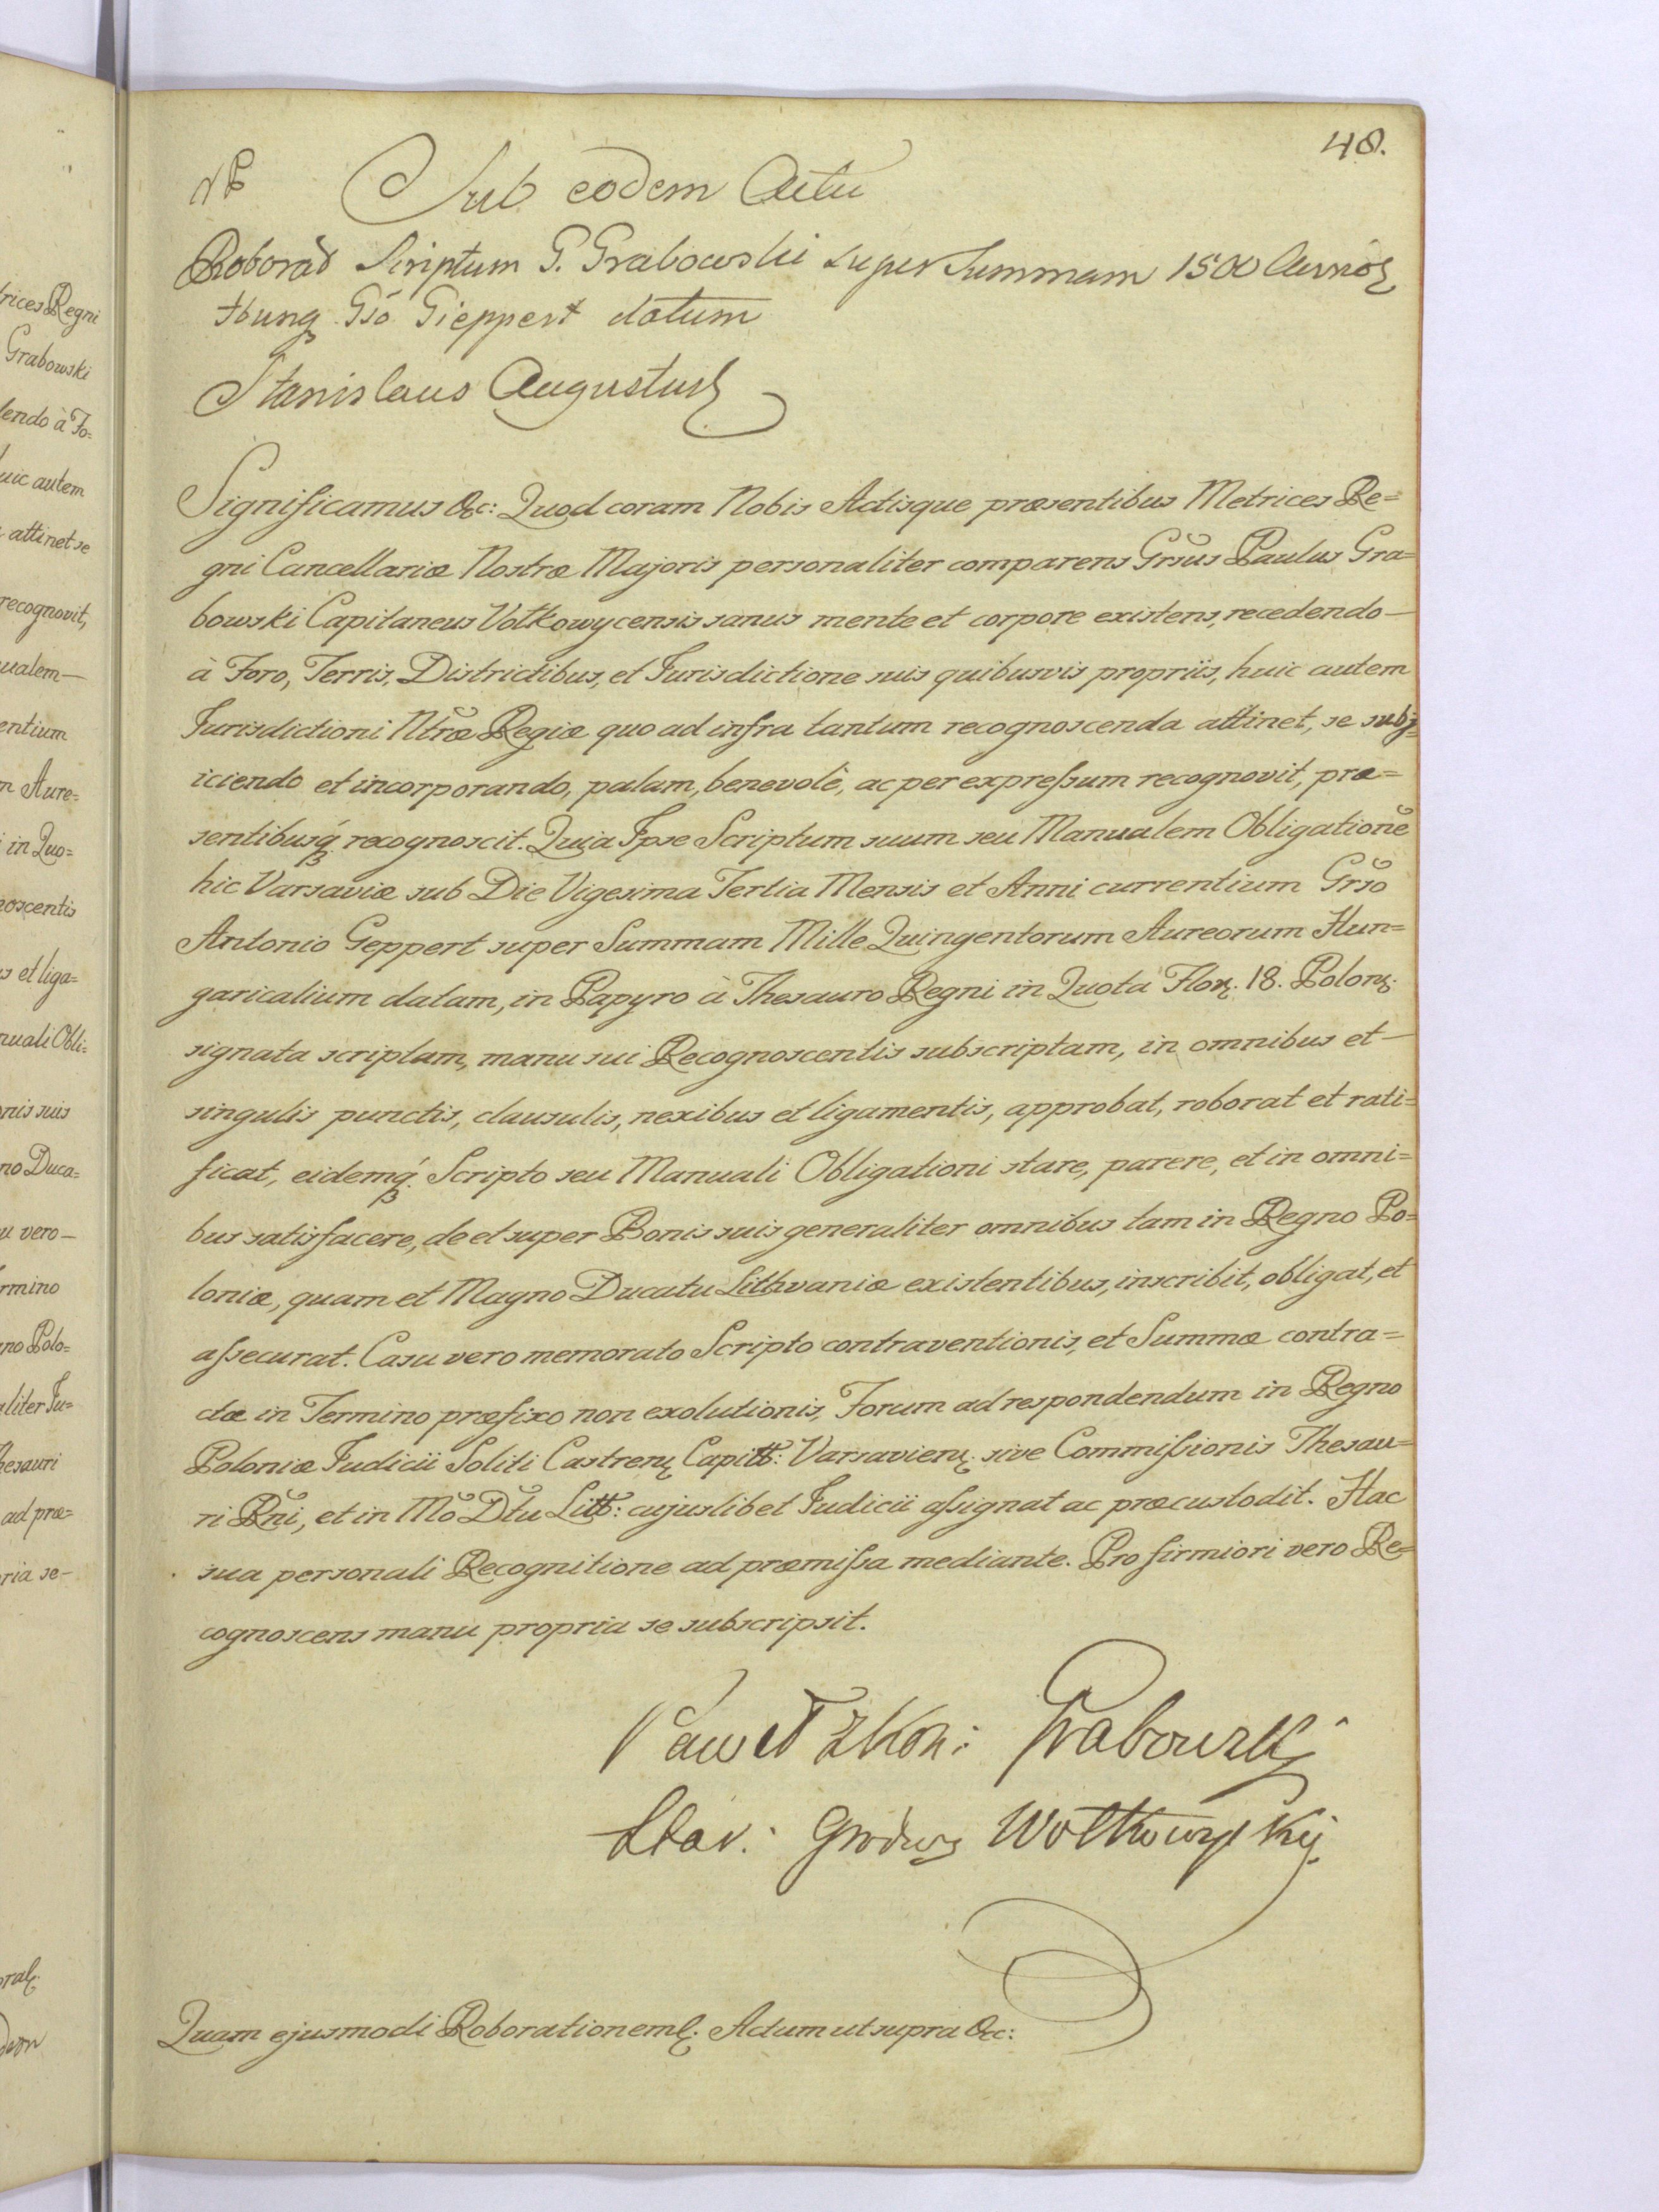 48.
Sub eodem Actu
Roborat Scriptum G. Grabowski super Summam 1500 Aurõz
Hung. Gsõ Gieppert datum
Stanislaus Augustus
Significamus &c: Quod coram Nobis Actisque præsentibus Metrices Re=
gni Cancellariæ Nostræ Majoris personaliter comparens Grsũs Paulus Gra=
bowski Capitaneus Volkowycensis sanus mente et corpore existens, recedendo—
à Foro, Terris, Districtibus, et Jurisdictione suis quibusvis propriis, huic autem
Jurisdictioni Ntræ Regiæ quo ad infra tantum recognoscenda attinet, se subj=
iciendo et incorporando, palam, benevolè, ac per expressum recognovit, præ=
sentibusq́ recognoscit. Quia Ipse Scriptum suum seu Manualem Obligationẽ
hic Varsaviæ sub Die Vigesima Tertia Mensis et Anni currentium Grsõ
Antonio Geppert super Summam Mille Quingentorum Aureorum Hun=
garicalium datam, in Papyro à Thesauro Regni in Quota Flor. 18. Polon.
signata scriptam, manu sui Recognoscentis subscriptam, in omnibus et—
singulis punctis, clausulis, nexibus et ligamentis, approbat, roborat et rati=
ficat, eidemq́ Scripto seu Manuali Obligationi stare, parere, et in omni=
bus satisfacere, de et super Bonis suis generaliter omnibus tam in Regno Po=
loniæ, quam et Magno Ducatu Lithvaniæ existentibus, inscribit, obligat, et
assecurat. Casu vero memorato Scripto contraventionis, et Summæ contra=
ctæ in Termino præfixo non exolutionis, Forum ad respondendum in Regno
Poloniæ Judicii Soliti Castren. Capitt: Varsavien. sive Commissionis Thesau=
ri Rñi, et in Mõ Dtũ Litt: cujuslibet Judicii assignat ac præcustodit. Hac
sua personali Recognitione ad præmissa mediante. Pro firmiori vero Re=
cognoscens manu propria se subscripsit.
Paweł z Kon: Grabowski
Star: Grodwy Wołkowyski
Quam ejusmodi Roborationem. Actum ut supra &c: